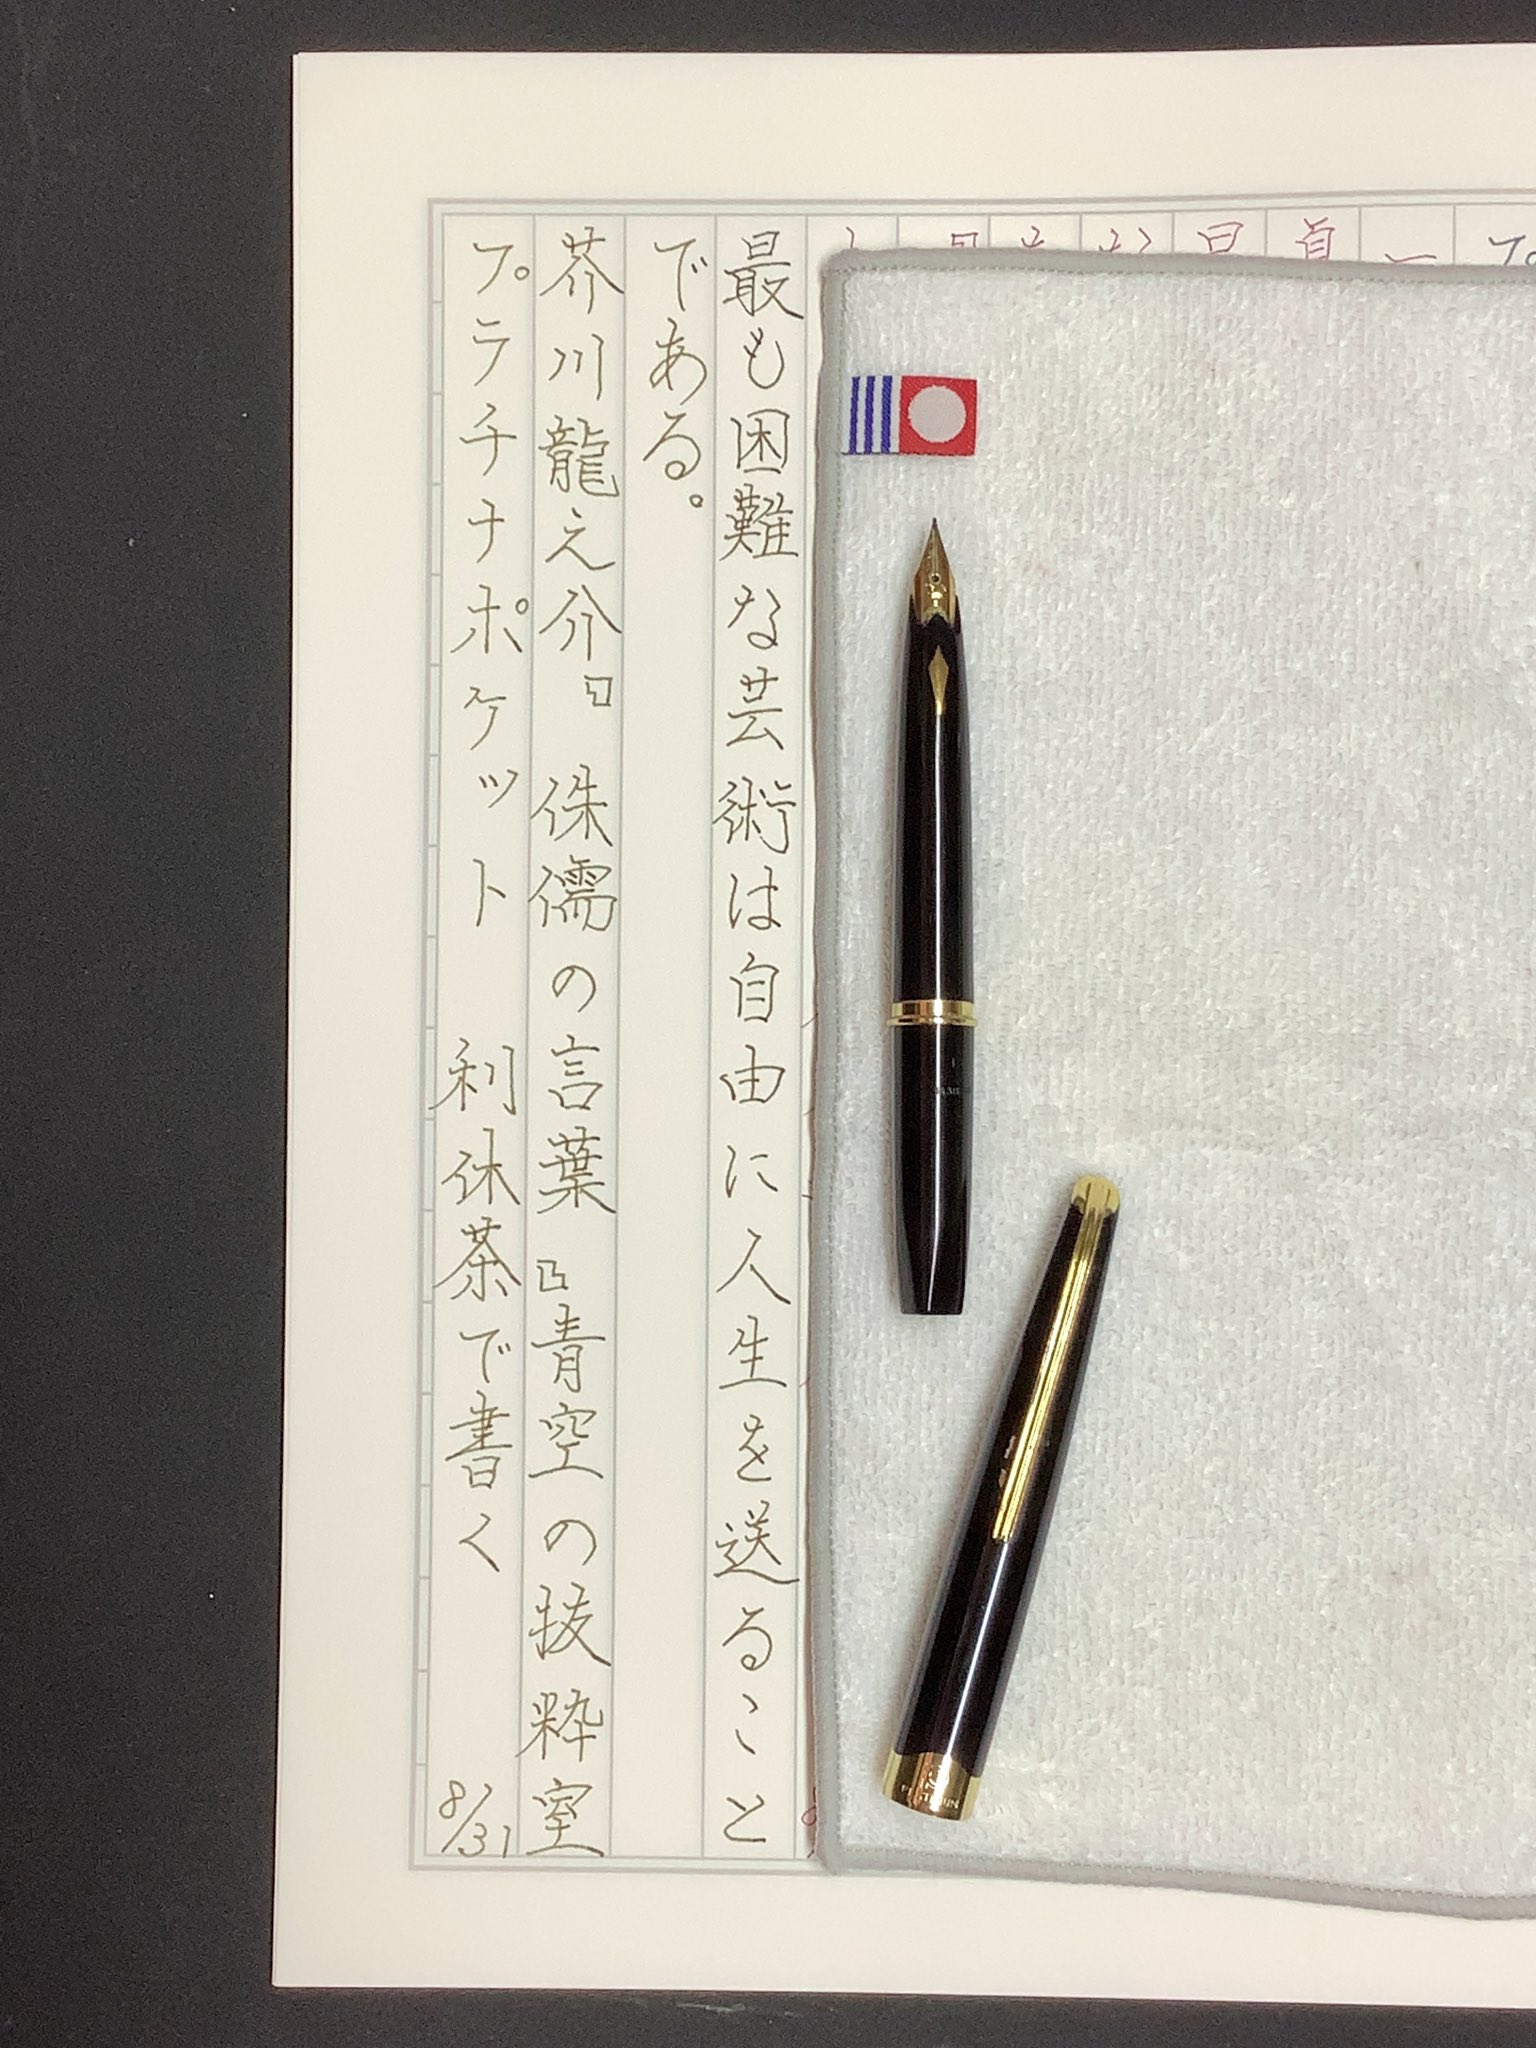 最も困難な芸術は自由に人生を送ること
である。
芥川龍之介『侏儒の言葉』青空の抜粋室
プラチナポケット 利休茶で書く
8/31